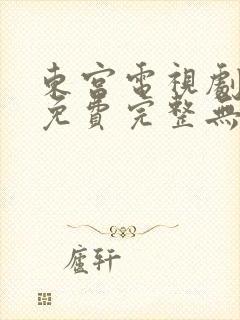 東宮電視劇
免費完整無
廬軒